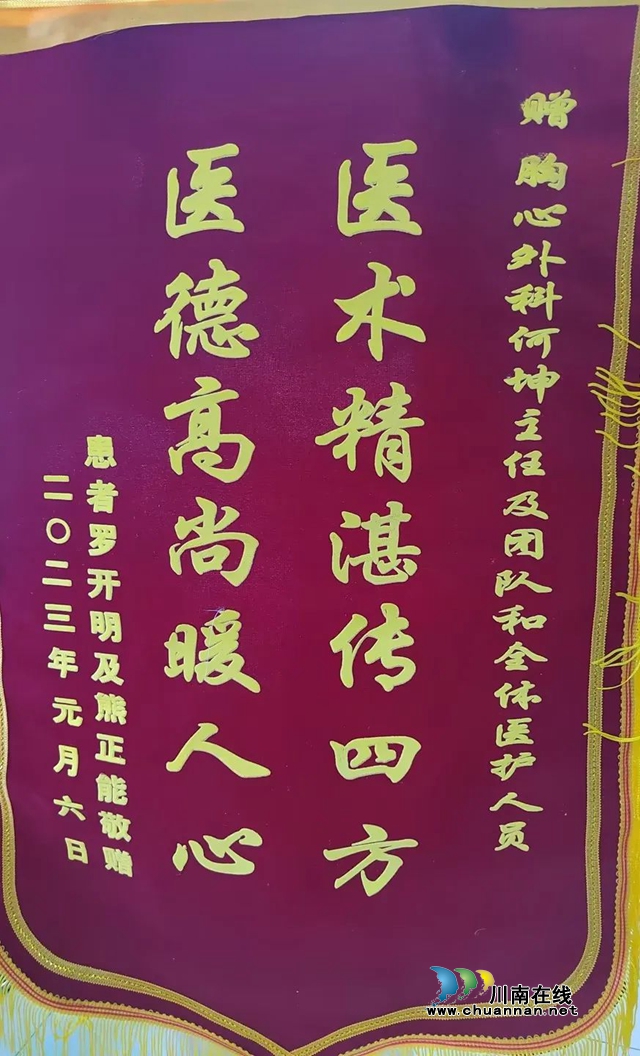 赠胸心外科何坤主任及团队和全体医护人员
医术精湛传四方
医德高尚暖人心
患者罗开明及熊正能敬赠
二〇二三年元月六日
川南在线
www.chuannan.net